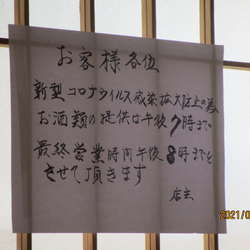 お客様各位
新型コロナウイルス感染拡大防止の為
お酒類の提供は午後7時まで
最終営業時間午後8時までと
させて頂きます
店主
2021/0